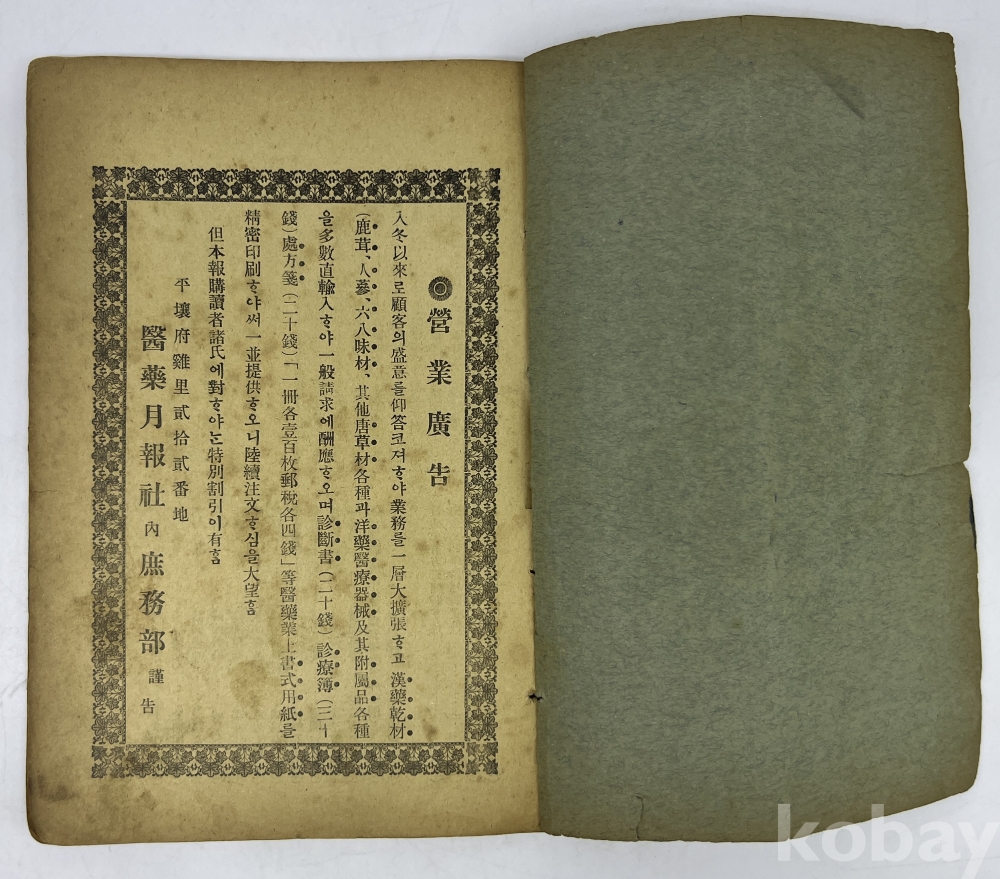 ◉營業廣告
入冬以來로顧客의盛意를仰答코져ᄒᆞ야業務를一層大擴張ᄒᆞ고漢藥乾材
(鹿茸、人蔘、六八味材、其他唐草材各種과洋藥醫療器械及其附屬品各種
을多數直輸入ᄒᆞ야一般請求에酬應ᄒᆞ오며診斷書(二十錢)診療簿(三十
錢)處方箋(二十錢)「一冊各壹百枚郵稅各四錢」等醫藥業上書式用紙를
精密印刷ᄒᆞ야써一並提供ᄒᆞ오니陸續注文ᄒᆞ심을大望홈
但本報購讀者諸氏에對ᄒᆞ야ᄂᆞᆫ特別割引이有홈
平壤府雞里貳拾貳番地
醫藥月報社內庶務部 謹告
kobay